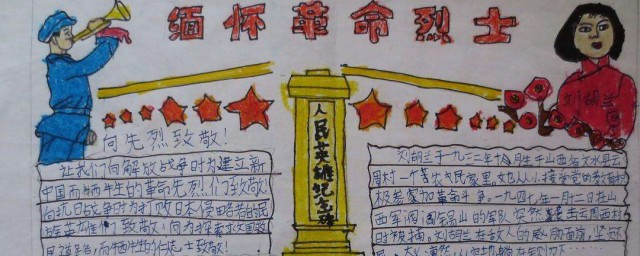 缅怀革命烈士
刘胡兰
向先烈致敬！
人民英雄纪念碑
让我们向解放战争时为建立新
中国而牺牲的革命先烈们致敬
向抗日战争时为打败日本侵略者的
英雄们致敬，向为探索
而牺牲的 士致敬！
刘胡兰于一九三二年十月生于山西省文水县云
周村一个 农民家里。她从小接受党的教育
极参加革命斗争。一九四七年一月十二日 山
西军阀阎锡山的军队突然 击云周西村
时被捕。刘胡兰在敌人的威胁面前，坚